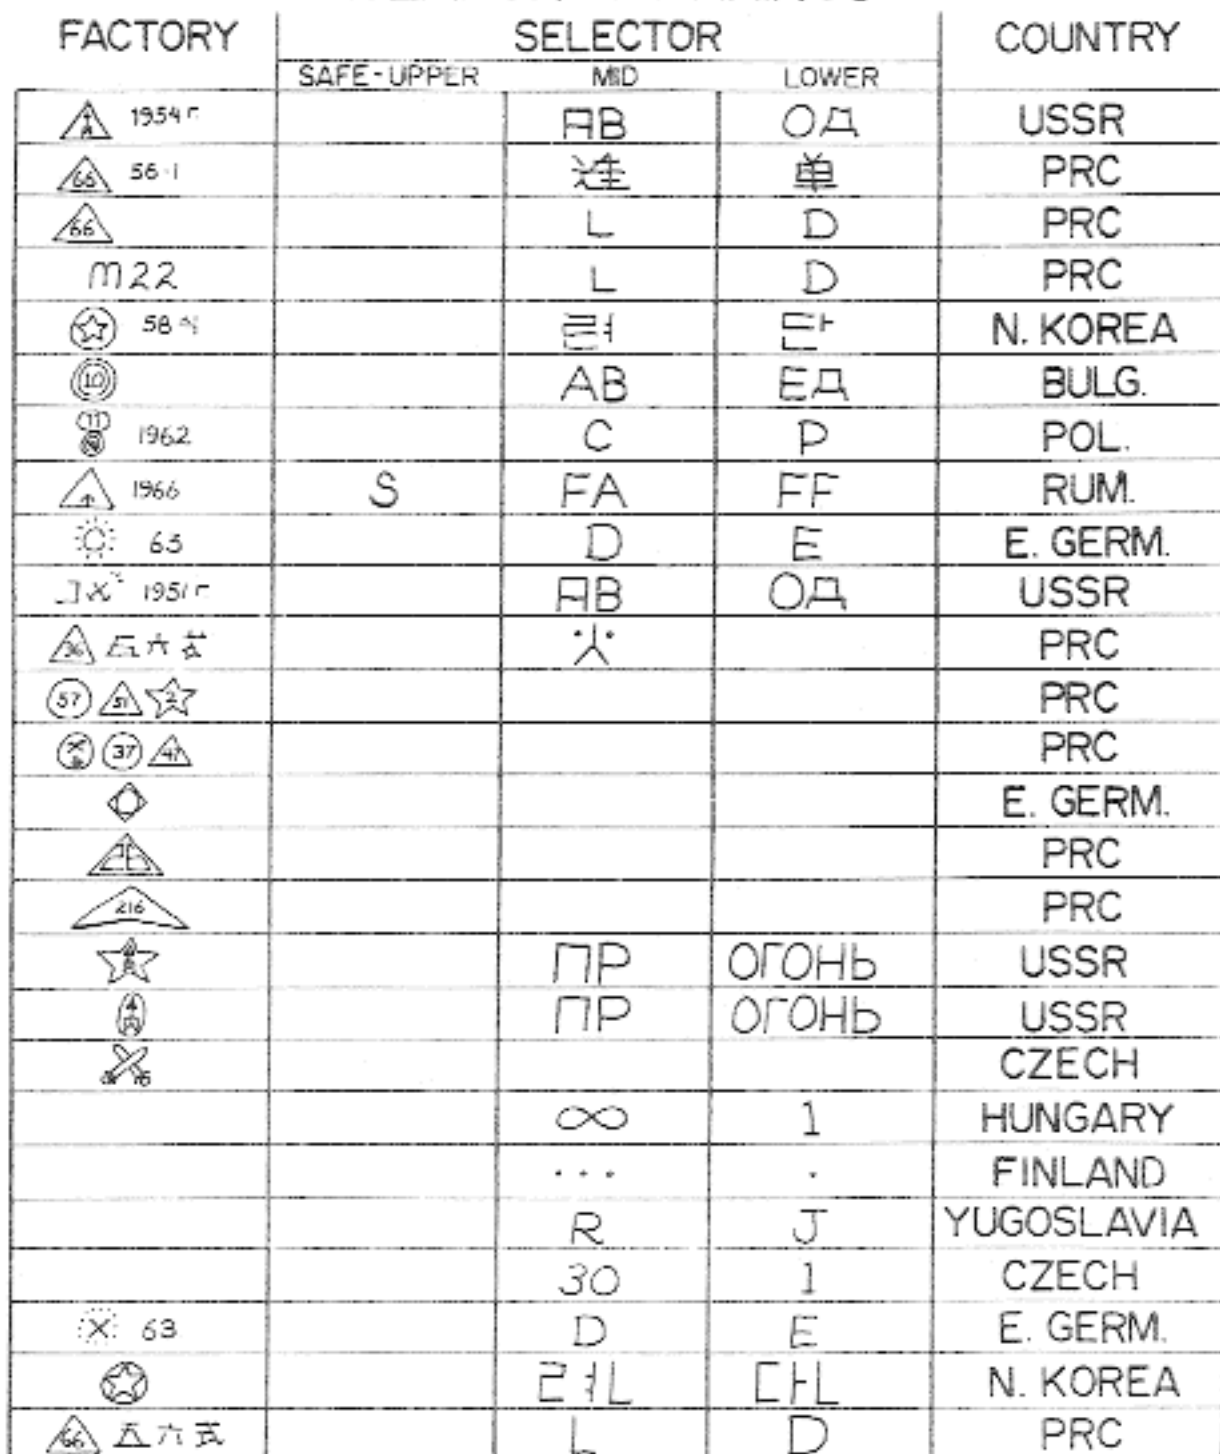 FACTORY SELECTOR COUNTRY
SAFE-UPPER MID LOWER
1954 г АВ ОД USSR
56-1 連 単 PRC
66 L D PRC
M22 L D PRC
58 N. KOREA
10 АВ ЕД BULG.
11 1962 C P POL.
1966 S FA FF RUM.
63 D E E. GERM.
1951 г АВ ОД USSR
36 五六式 PRC
57 51 2 PRC
37 47 PRC
E. GERM.
26 PRC
216 PRC
ПР ОГОНЬ USSR
ПР ОГОНЬ USSR
CZECH
∞ 1 HUNGARY
... . FINLAND
R J YUGOSLAVIA
30 1 CZECH
63 D E E. GERM.
N. KOREA
66 五六式 L D PRC